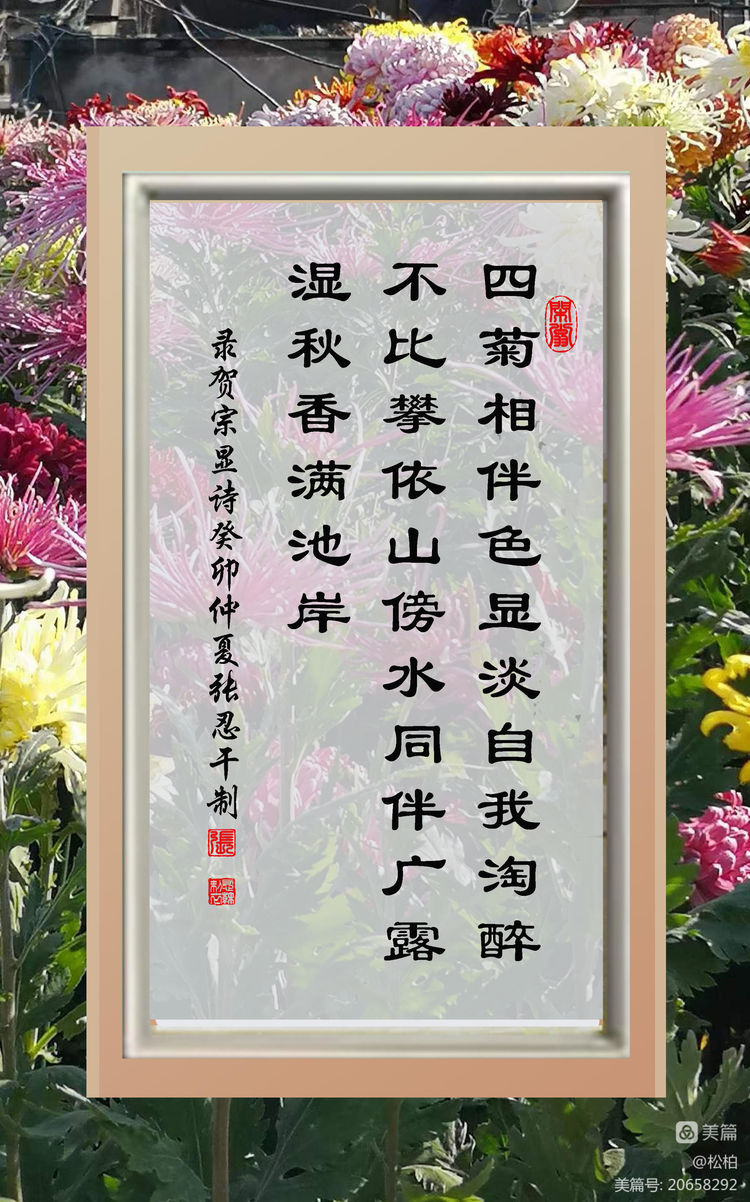 四菊相伴色显淡自我淘醉
不比攀依山傍水同伴广露
湿秋香满池岸
录贺宗显诗癸卯仲夏张忍干制
張
美篇
@松柏
美篇号: 20658292